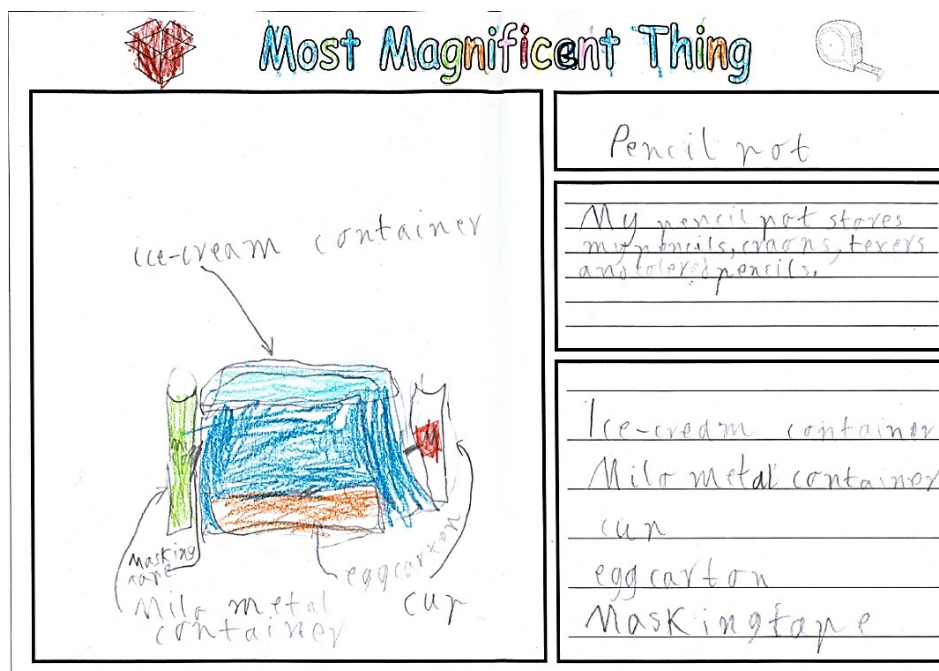 Most Magnificent Thing
ice-cream container
Masking
tape
Milo metal
container
eggcarton
cup
Pencil pot
My pencil pot stores
my pencils, craons, texers
and colered pencils.
Ice-cream container
Milo metal container
cup
egg carton
Masking tape